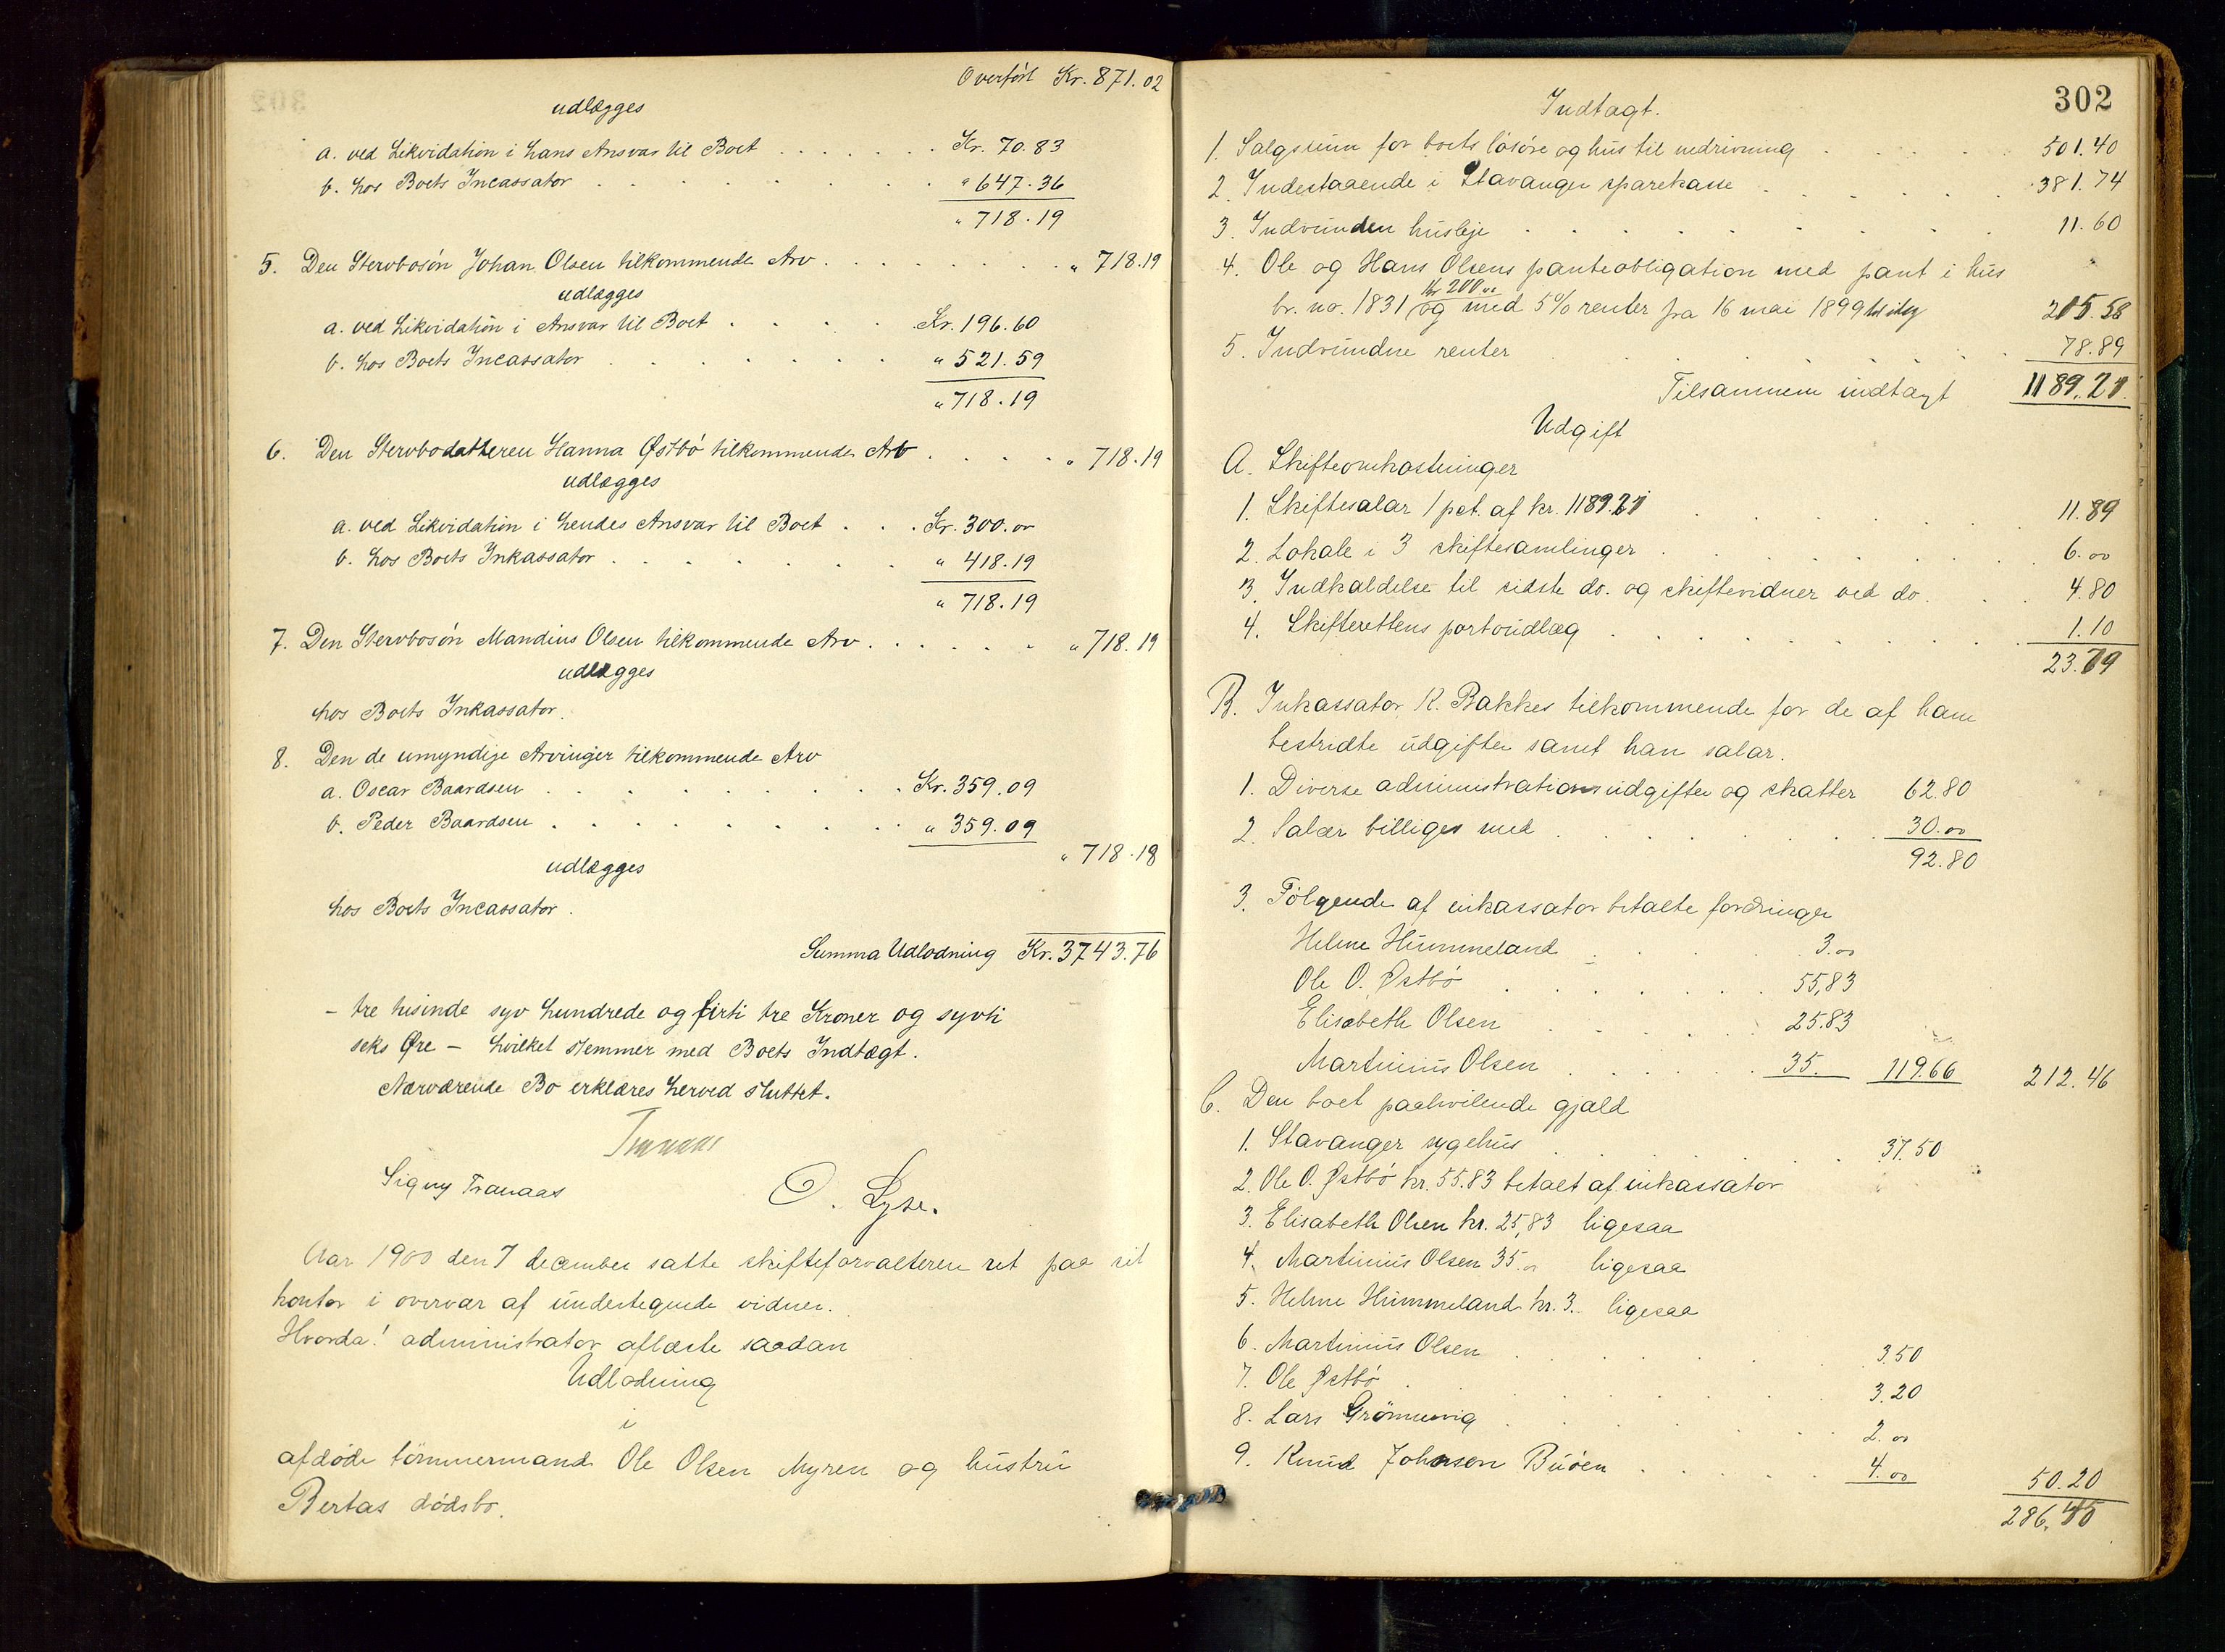 Overført Kr. 871.02
udlægges
a. ved Likvidation i hans Ansvar til Boet . . . . . . Kr. 70.83
b. hos Boets Incassator . . . . . . . . . " 647.36
" 718.19
5. Den Stervbosøn Johan Olsen tilkommende Arv . . . . . . . . " 718.19
udlægges
a. ved Likvidation i Ansvar til Boet . . . . . Kr. 196.60
b. hos Boets Incassator . . . . . . . " 521.59
" 718.19
6. Den Stervbodatteren Hanna Østbø tilkommende Arv . . . . " 718.19
udlægges
a. ved Likvidation i hendes Ansvar til Boet . . . Kr. 300.00
b. hos Boets Inkassator . . . . . . . . " 418.19
" 718.19
7. Den Stervbosøn Mandius Olsen tilkommende Arv . . . . . . " 718.19
udlægges
hos Boets Inkassator.
8. Den de umyndige Arvinger tilkommende Arv
a. Oscar Baardsen . . . . . . . . . Kr. 359.09
b. Peder Baardsen . . . . . . . . . " 359.09
" 718.18
udlægges
hos Boets Incassator.
Summa Udlodning Kr. 3743.76
- tre tusinde syv hundrede og firti tre Kroner og syvti
seks Øre - hvilket stemmer med Boets Indtægt.
Nærværende Bo erklæres herved sluttet.
Tranaas
Signy Tranaas O. Lyse.
Aar 1900 den 7 december satte skifteforvalteren ret paa sit
kontor i overvær af undertegnede vidner.
Hvorda! administrator aflæste saadan
Udlodning
i
afdøde tömmermand Ole Olsen Myren og hustru
Bertas dødsbo.
302
Indtægt.
1. Salgssum for boets løsøre og hus til nedrivning . . . . 501.40
2. Indestaaende i Stavanger sparekasse . . . . . 381.74
3. Indvunden husleje . . . . . . . . 11.60
4. Ole og Hans Olsens panteobligation med pant i hus "
kr 200.00
br. no. 1831 og med 5% renter fra 16 mai 1899 til idag 215.58
5. Indvundne renter . . . . . . . 78.89
Tilsammen indtægt 1189.21
Udgift
A. Skifteomkostninger
1. Skiftesalær 1 pct. af kr. 1189.21 . . . . . . 11.89
2. Lokale i 3 skiftesamlinger . . . . . . . 6.00
3. Indkaldelse til sidste do. og skiftevidner ved do. . . 4.80
4. Skifterettens portoudlæg . . . . . . . . 1.10
23.79
B. Inkassator K. Bakkes tilkommende for de af ham
bestridte udgifter samt han salær.
1. Diverse administrationsudgifter og skatter 62.80
2. Salær billiges med . . . . . . 30.00
92.80
3. Følgende af inkassator betalte fordringer
Helene Hummeland . . . . 3.00
Ole O. Østbø . . . . . . 55,83
Elisabeth Olsen . . . . . 25.83
Martinius Olsen . . . . . . 35. 119.66 212.46
C. Den boet paahvilende gjæld
1. Stavanger sygehus . . . . . . . 37.50
2. Ole O. Østbø kr. 55.83 betalt af inkassator
3. Elisabeth Olsen kr. 25,83 ligesaa
4. Martinius Olsen 35.00 ligesaa
5. Helene Hummeland kr. 3. ligesaa
6. Martinius Olsen . . . . . . 3.50
7. Ole Østbø . . . . . . . 3.20
8. Lars Grönnevig . . . . . . 2.00
9. Knud Johnsen Buöen . . . . . 4.00 50.20
286.45